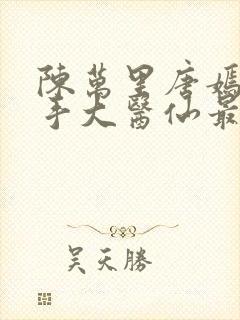 陳萬里唐嫣
手大醫仙最
吴天勝